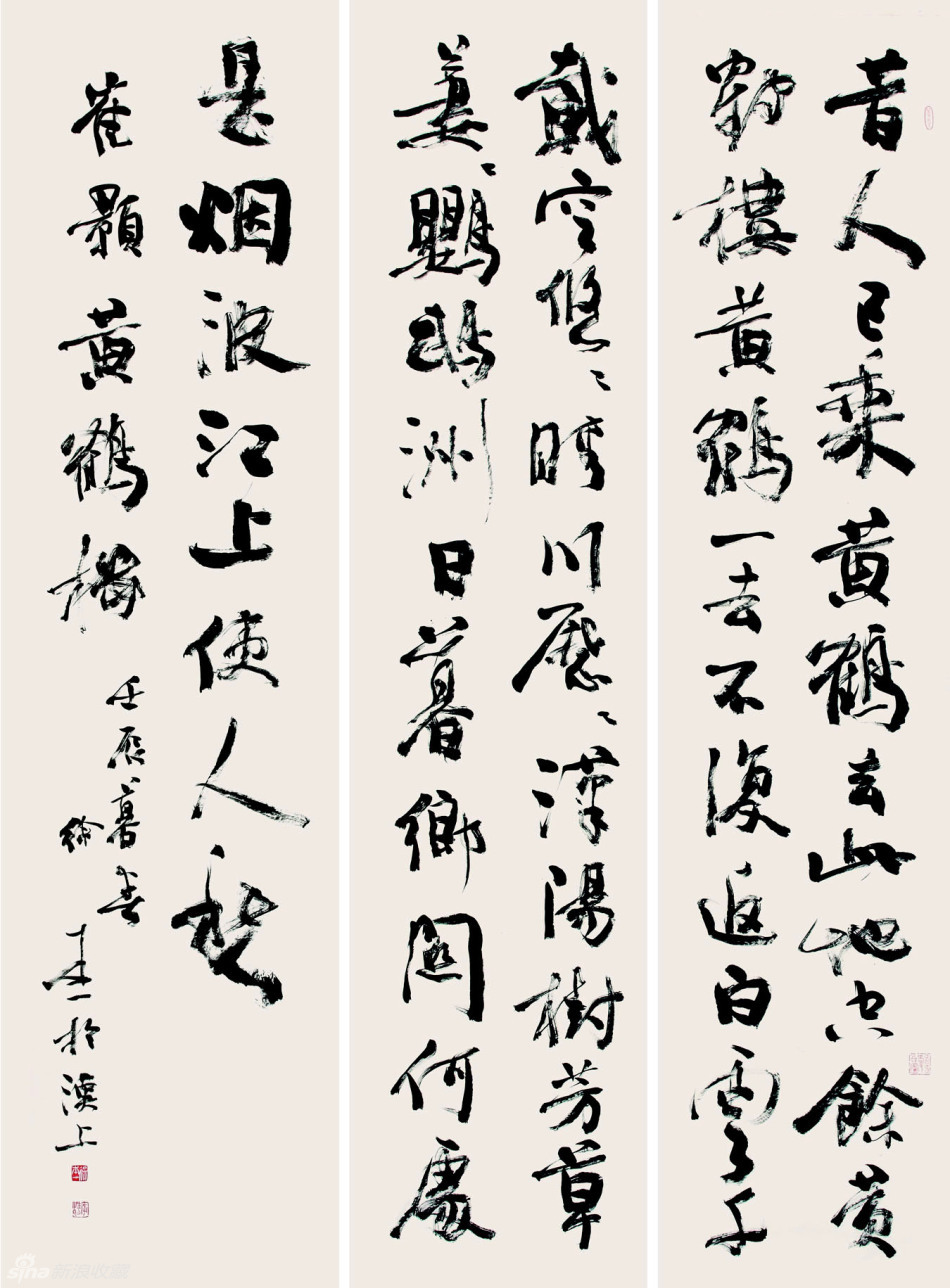 昔人已乘黄鶴去此地空餘黄
鶴樓黄鶴一去不復返白雲千
載空悠〻晴川歷〻漢陽樹芳草
萋〻鸚鵡洲日暮鄉關何處
是烟波江上使人愁
崔顥黄鶴樓
壬辰暮春
徐本一於漢上
sina新浪收藏